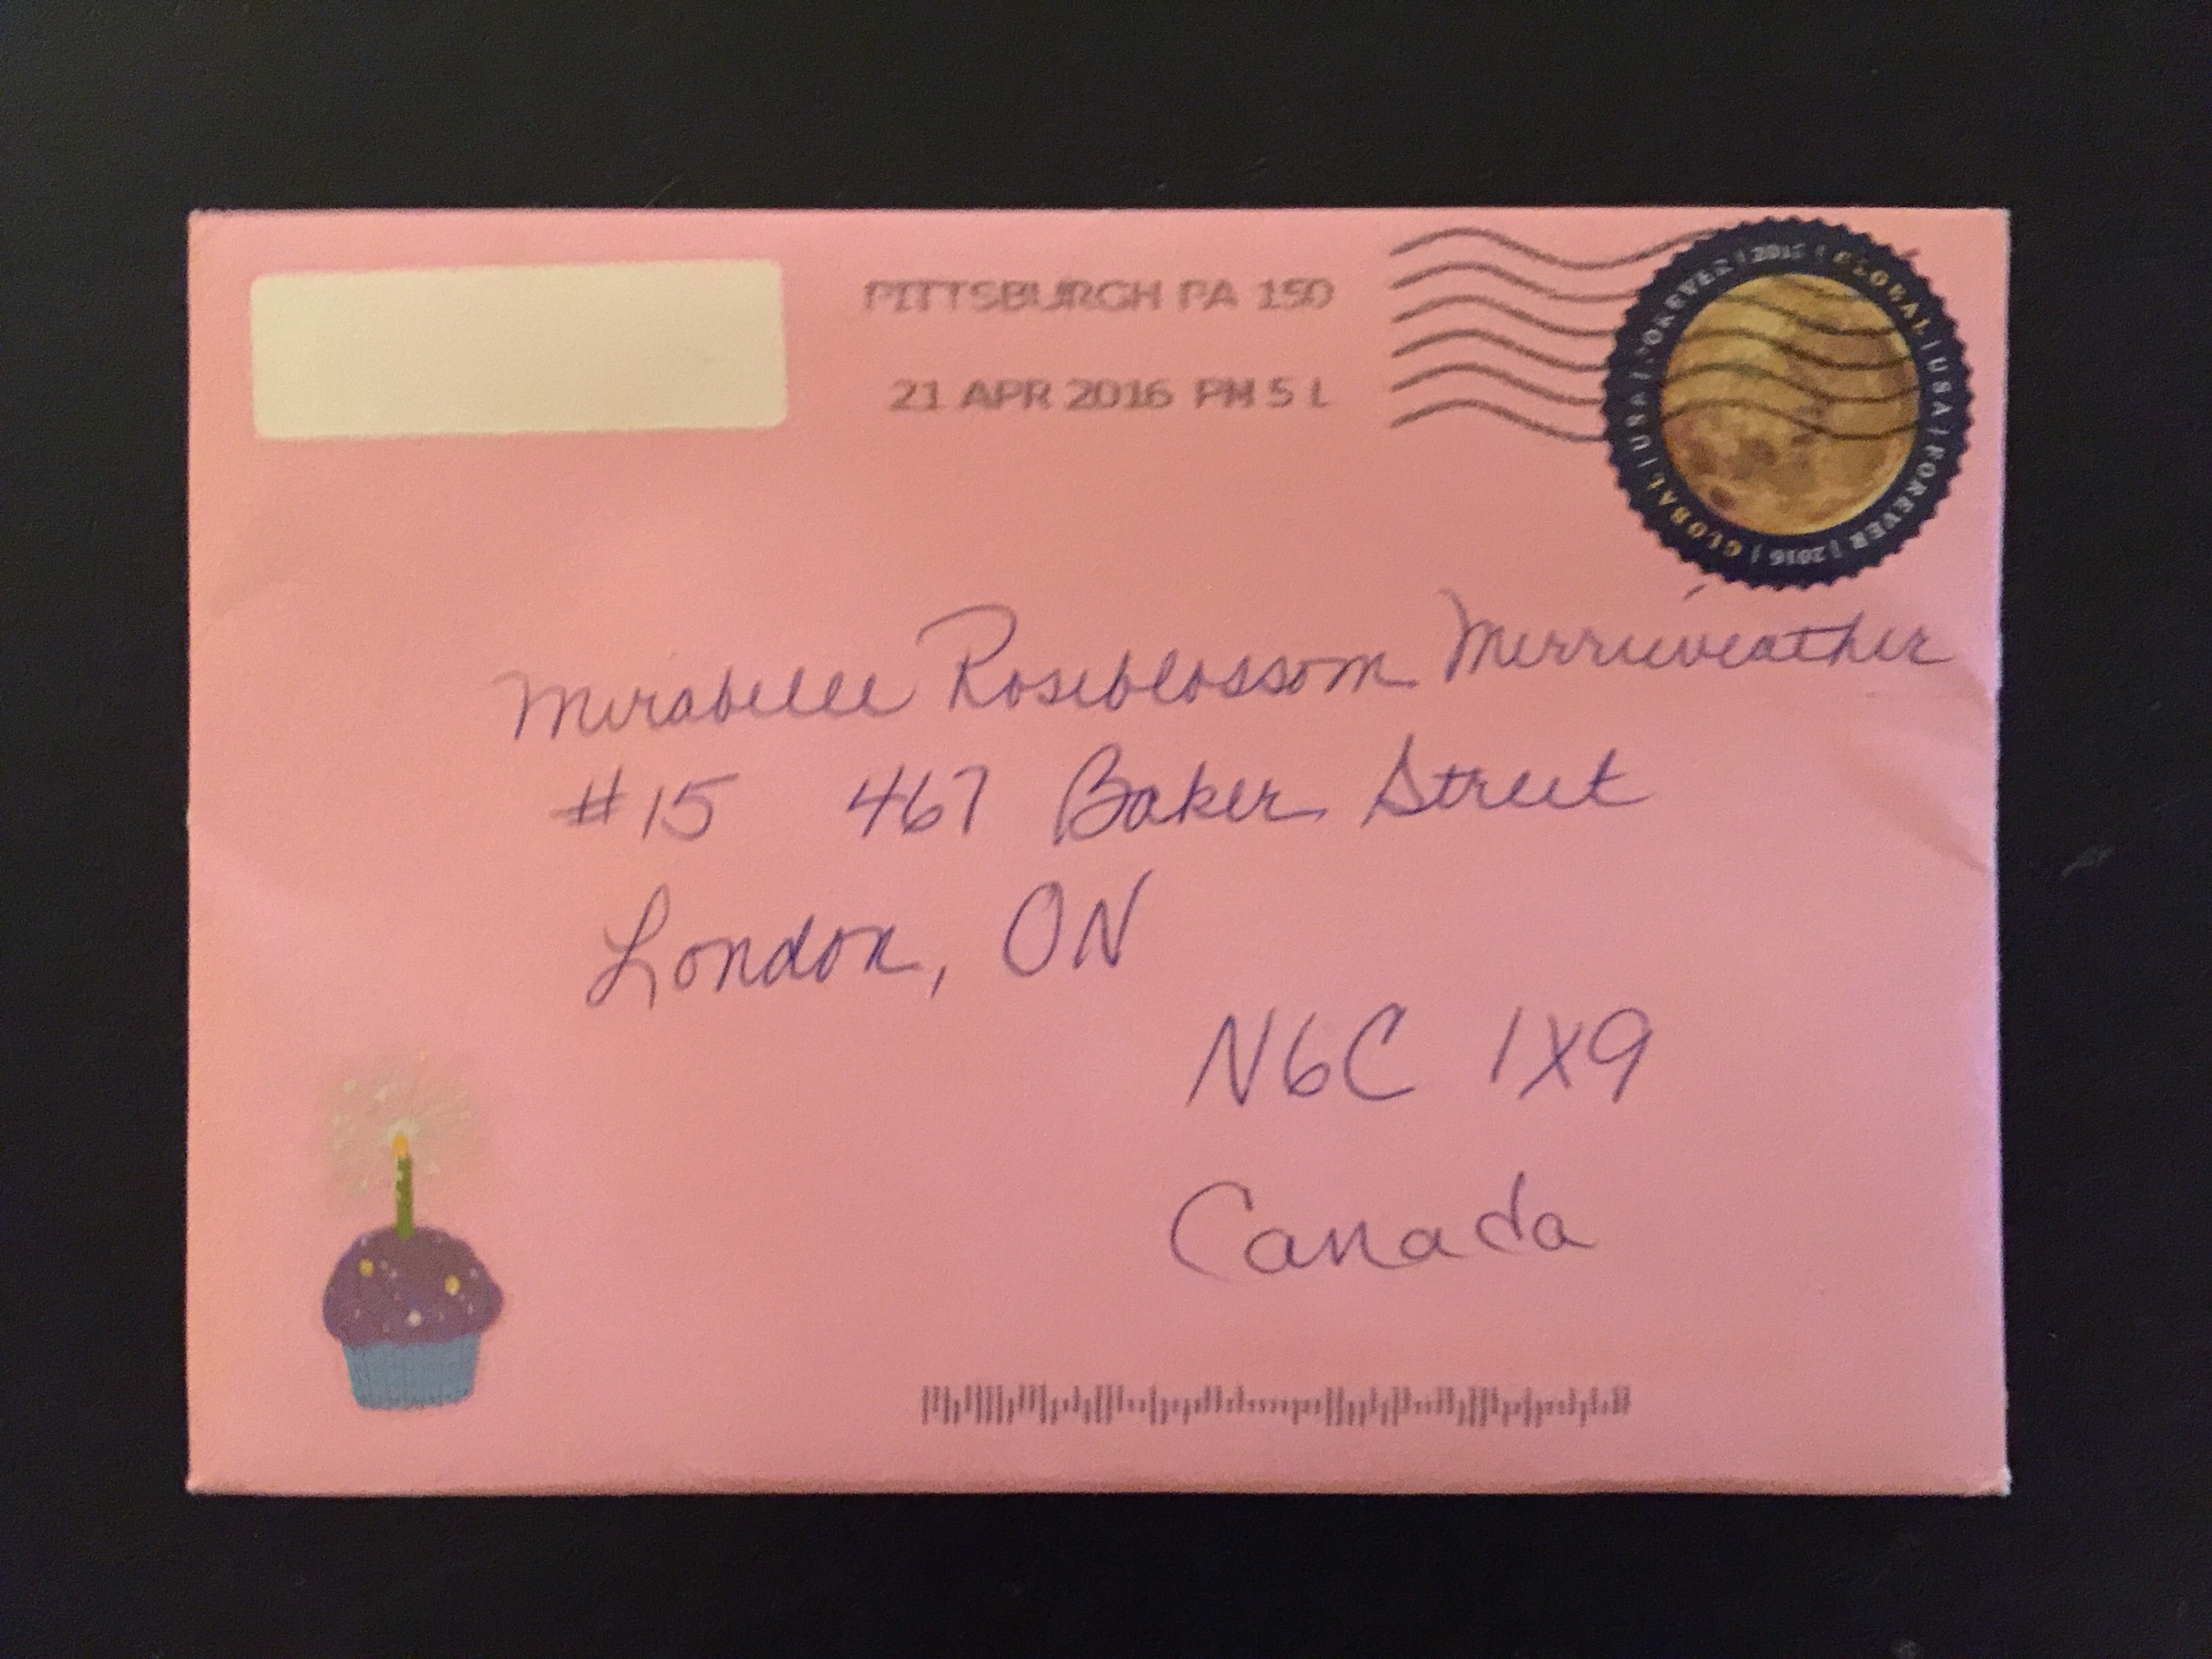 PITTSBURGH PA 150
21 APR 2016 PM 5 L
GLOBAL | USA | FOREVER | 2016 | GLOBAL | USA | FOREVER | 2016 |
Mirabelle Roseblossom Merriweather
#15 467 Baker Street
London, ON
N6C 1X9
Canada